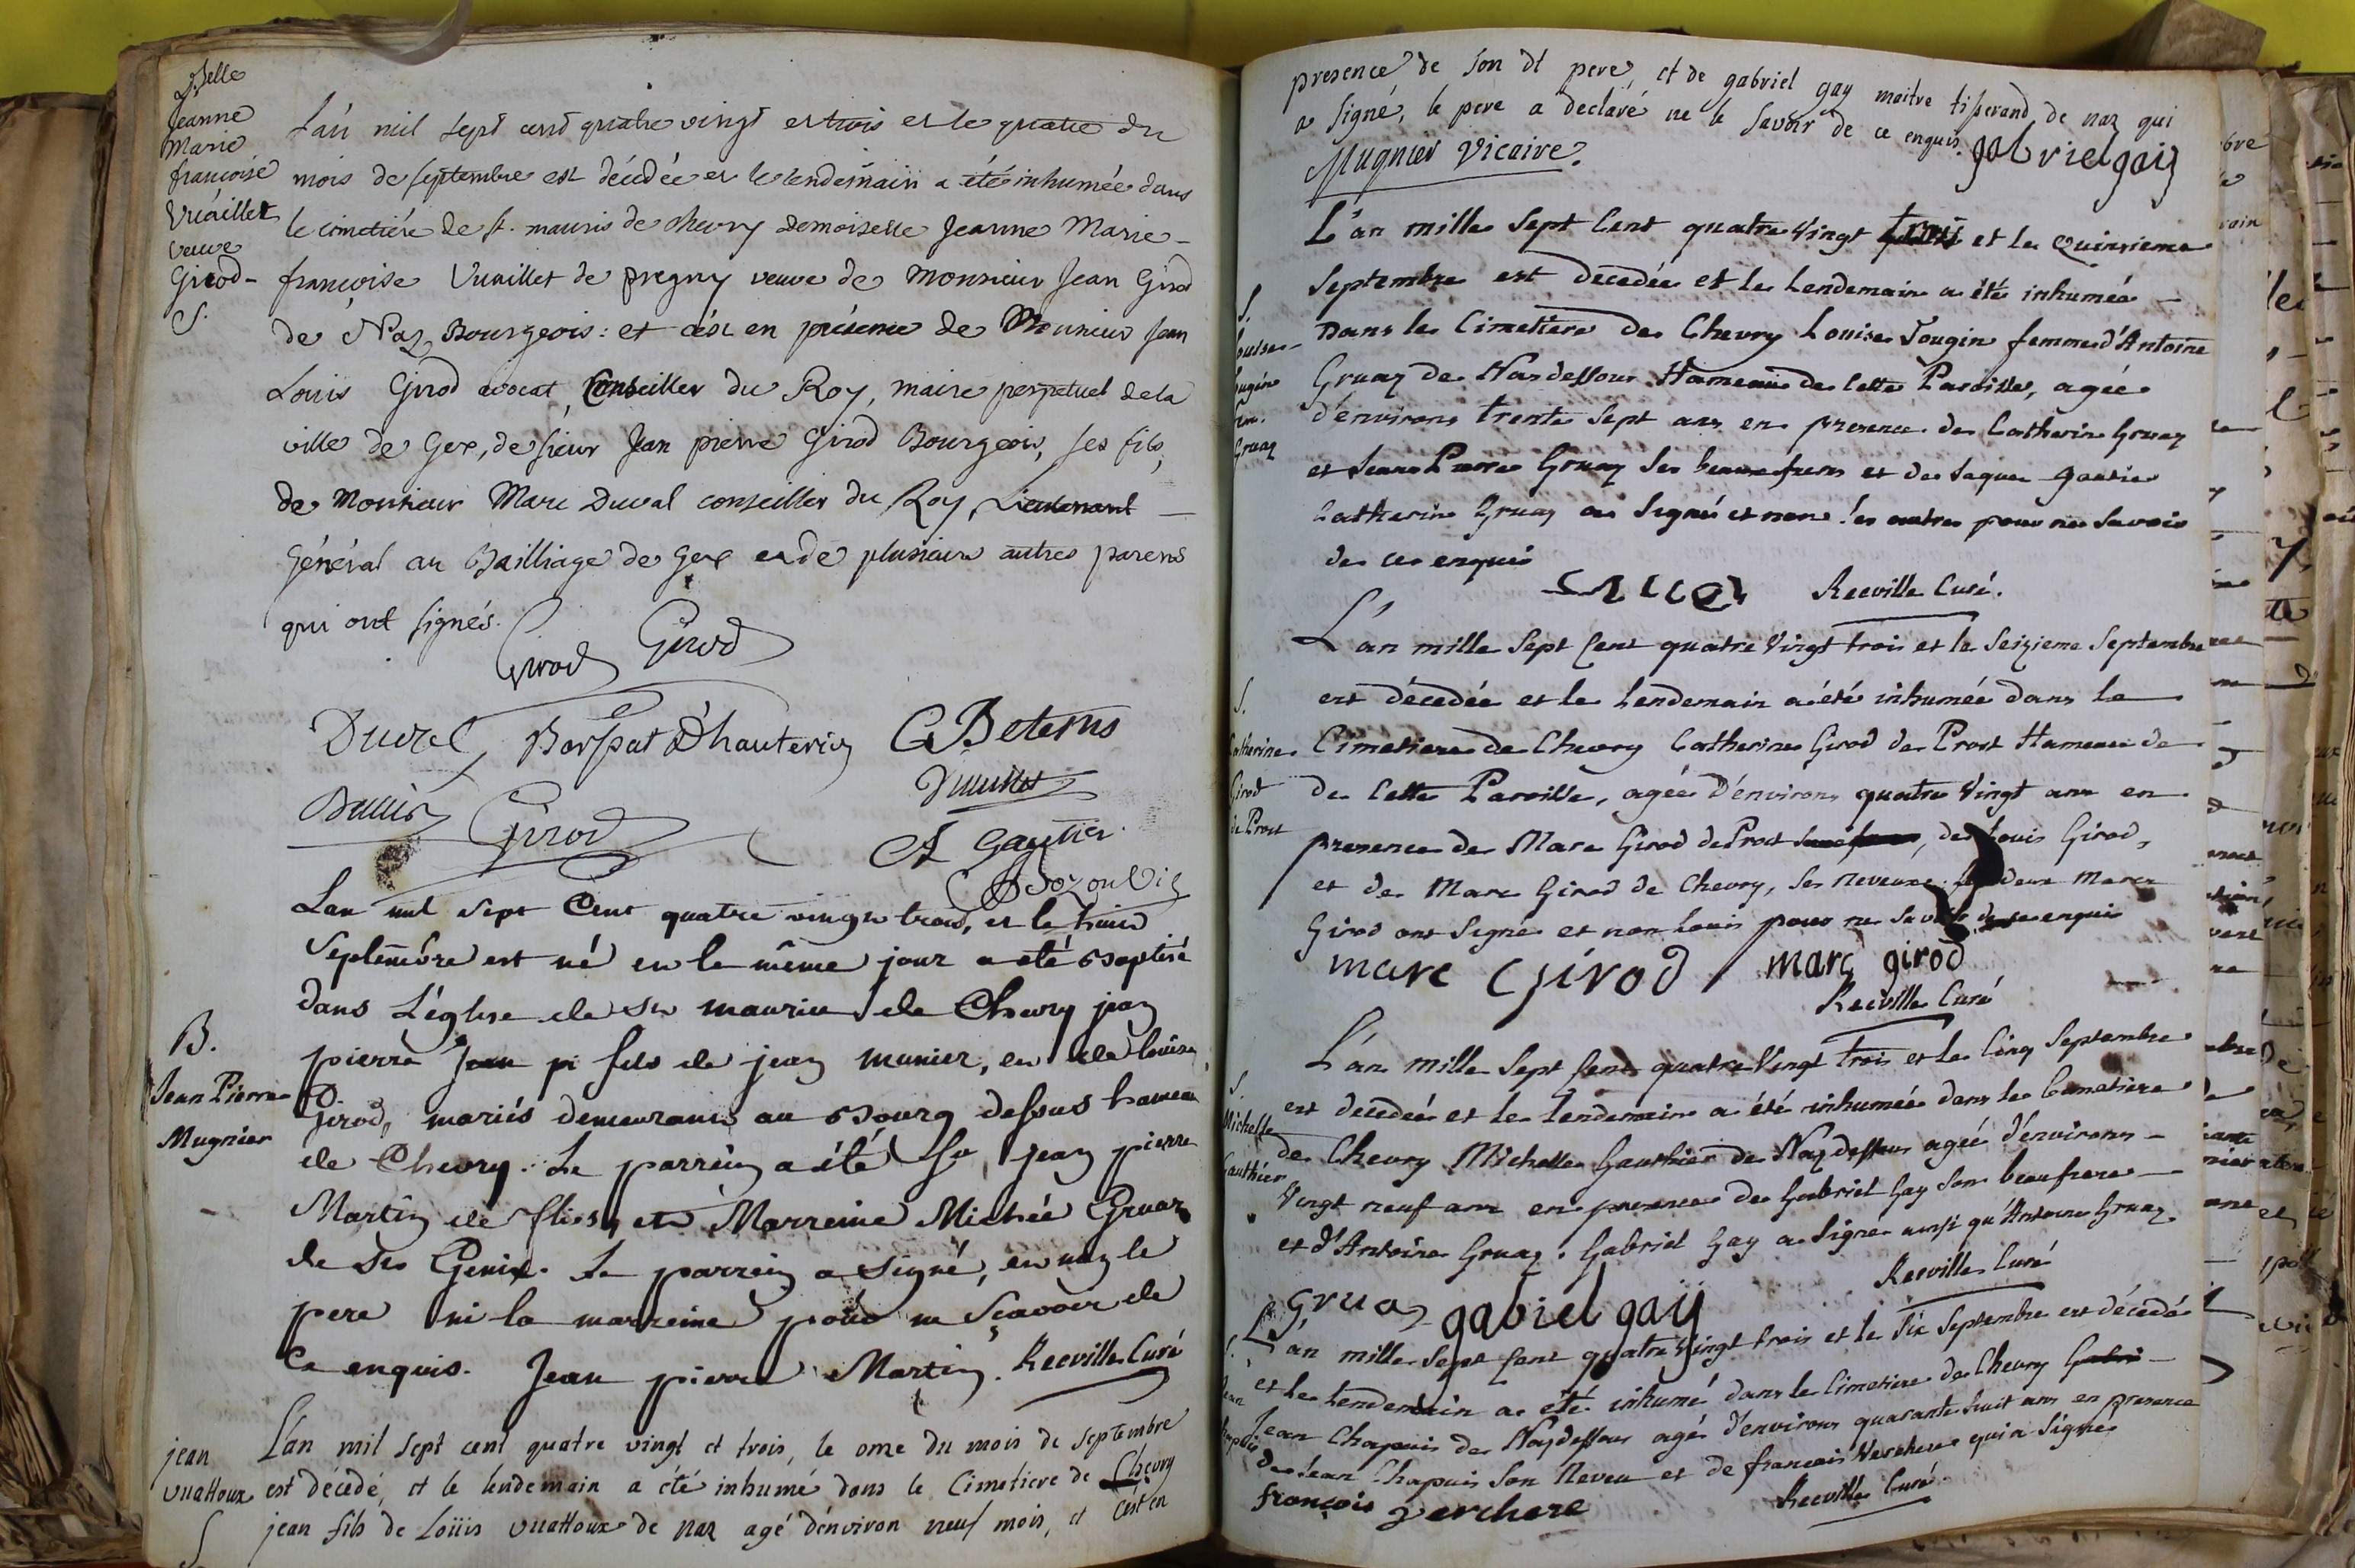 Dselle
Jeanne
Marie
françoise
Vuaillet
veuve
Girod-
S.
L'an mil sept cent quatre vingt et trois et le quatre du
mois de septembre est décédée et le lendemain a été inhumée dans
le cimetiére de st. mauris de chevry demoiselle Jeanne Marie-
françoise Vuaillet de pregny veuve de Monsieur Jean Girod
de Naz Bourgeois: et c'est en présence de Monsieur Jean
Louis Girod avocat, Conseiller du Roy, maire perpetuel de la
ville de Gex, de sieur Jean pierre Girod Bourgeois, ses fils,
de Monsieur Marc Duval conseiller du Roy, Lieutenant
Général au Bailliage de Gex et de plusieurs autres parens
qui ont signés.
Girod Girod
Duval Borssat d'hauteriv C Betems
Girod
A Gautier
B.
Jean Pierre
Mugnier
Lan mil sept Cent quatre vingt trois, et le
Septembre est né et le même jour a été Baptisé
dans L'église de st maurice de Chevry jean
pierre Jean pi fils de jean munier, et de louise
Girod, mariés demeurants au Bourg dessus hameau
de Chevry. Le parrein a été Sr jean pierre
Martin de flies, et Marreine Michée Gruaz
de St Genix. Le parrein a signé, et non le
pere ni la marreine pour ne sçavoir de
Ce enquis. Jean pierre Martin. Reeville Curé
jean
vuattoux
S
L'an mil sept cent quatre vingt et trois, le onze du mois de septembre
est décédé, et le lendemain a été inhumé dans le Cimetiere de Chevry
jean fils de Loüis vuattoux de naz agé d'environ neuf mois, et c'est en
presence de son dt pere, et de gabriel gay maitre tisserand de naz qui
a signé, le pere a declaré ne le savoir de ce enquis. gabriel gaij
Mugnier Vicaire.
S.
Louise
Gruaz
L'an mille Sept Cent quatre Vingt trois et le Quinsieme
Septembre est decedée et le Lendemain a été inhumée
Dans le Cimetiere de Chevry Louise Jougin femme d'Antoine
Gruaz de Naz dessous Hameau de Cette Paroisse, agée
d'environs trente Sept ans en presence de Catherin Gruaz
et Jean Pierre Gruaz Ses beaux freres et de Jaque Gautier
Catherin Gruaz a Signé et non les autres pour ne Savoir
de ce enquis
Reeville Curé.
S.
Catherine
Girod
de Prost
L'an mille Sept Cent quatre Vingt trois et le Seizieme Septembre
est décedée et le Lendemain a été inhumée dans le
Cimetiere de Chevry Catherine Girod de Prost Hameau de
de Cette Paroisse, agée d'environs quatre Vingt ans en
presence de Marc Girod de Prost, de Louis Girod,
et de Marc Girod de Chevry, Ses Neveux. Les deux Marc
Girod ont Signé et non Louis pour ne Savoir de ce enquis
marc Girod marc girod
Reeville Curé
S.
Michelle
Gauthier
L'an mille Sept Cent quatre Vingt trois et le Cinq Septembre
est decedée et le Lendemain a été inhumée dans le Cimetiere
de Chevry Michelle Gauthier de Naz dessous agée d'environs
Vingt neuf ans en presence de Gabriel Gay Son beaufrere
et d'Antoine Gruaz. Gabriel Gay a Signé ainsi qu'Antoine Gruaz.
Reeville Curé
Gruaz gabiel gaij
S.
Jean
L'an mille Sept Cent quatre Vingt trois et le Six Septembre est décedé
et le Lendemain a été inhumé dans le Cimetiere de Chevry Gabri
Jean Chapuis de Naz dessous agé d'environs quarante huit ans en presence
de Jean Chapuis Son Neveu et de francois Verchere qui a Signé
françois verchere
Reeville Curé